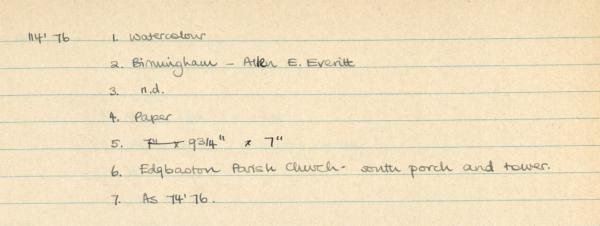 114'76 1. Watercolour
2. Birmingham - Allen E. Everitt
3. n.d.
4. Paper
5. 7" x 9 3/4" x 7"
6. Edgbaston Parish Church - south porch and tower.
7. As 74'76.